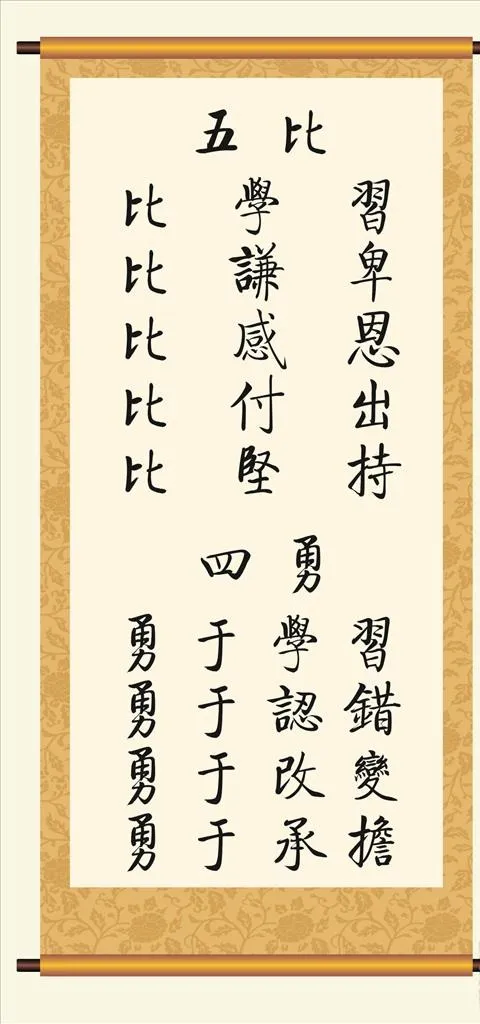 五比
比學習
比謙卑
比感恩
比付出
比堅持
四勇
勇于學習
勇于認錯
勇于改變
勇于承擔